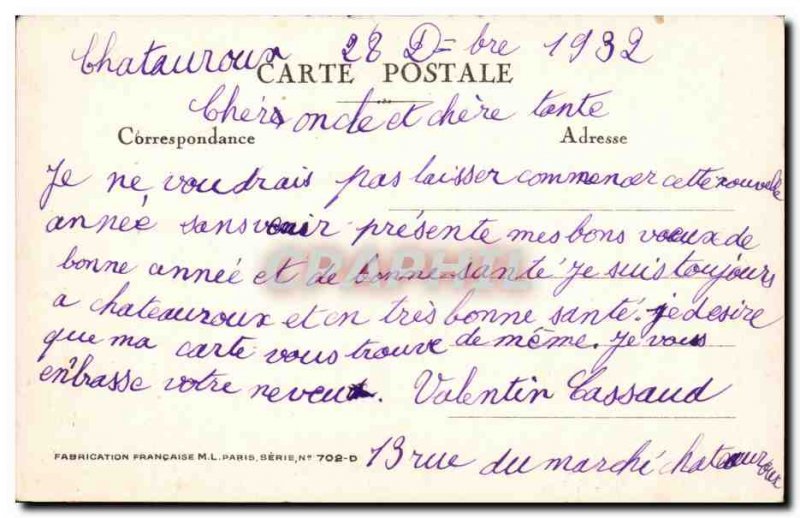 Chatauroux 28 D=bre 1932
CARTE POSTALE
Chèrs oncle et chère tante
Correspondance Adresse
Je ne voudrais pas laisser commencer cette nouvelle
année sans venir présente mes bons voeux de
bonne année et de bonne santé je suis toujours
a chateauroux et en très bonne santé. je desire
que ma carte vous trouve de même. Je vous
enbrasse votre neveu. Valentin Cassaud
FABRICATION FRANÇAISE M.L. PARIS, SÉRIE, No 702-D
13 rue du marché chatauroux
CPAPHIL